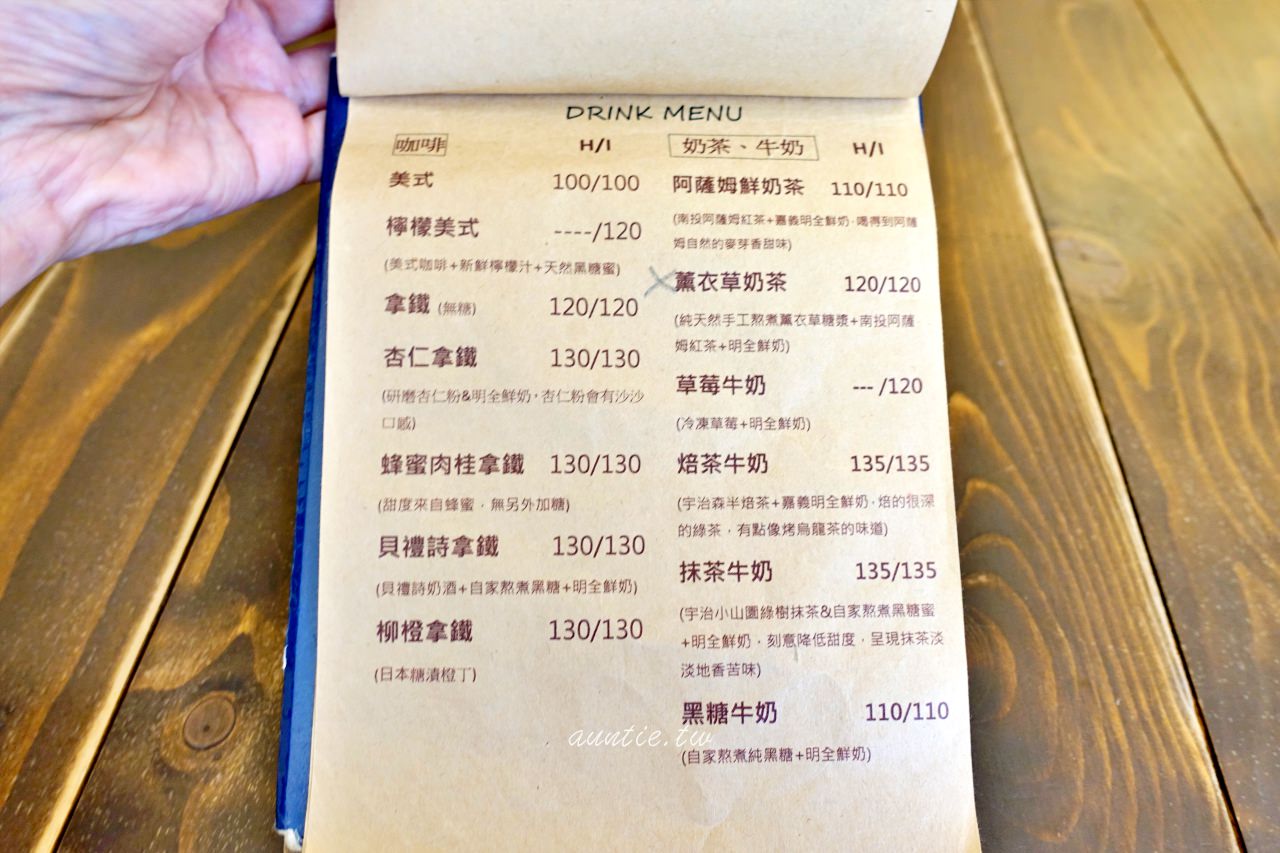 DRINK MENU
咖啡 H/I
美式 100/100
檸檬美式 ----/120
(美式咖啡+新鮮檸檬汁+天然黑糖蜜)
拿鐵 (無糖) 120/120
杏仁拿鐵 130/130
(研磨杏仁粉&明全鮮奶，杏仁粉會有沙沙
口感)
蜂蜜肉桂拿鐵 130/130
(甜度來自蜂蜜，無另外加糖)
貝禮詩拿鐵 130/130
(貝禮詩奶酒+自家熬煮黑糖+明全鮮奶)
柳橙拿鐵 130/130
(日本糖漬橙丁)
奶茶、牛奶 H/I
阿薩姆鮮奶茶 110/110
(南投阿薩姆紅茶+嘉義明全鮮奶，喝得到阿薩
姆自然的麥芽香甜味)
薰衣草奶茶 120/120
(純天然手工熬煮薰衣草糖漿+南投阿薩
姆紅茶+明全鮮奶)
草莓牛奶 --- /120
(冷凍草莓+明全鮮奶)
焙茶牛奶 135/135
(宇治森半焙茶+嘉義明全鮮奶，焙的很深
的綠茶，有點像烤烏龍茶的味道)
抹茶牛奶 135/135
(宇治小山園綠樹抹茶&自家熬煮黑糖蜜
+明全鮮奶，刻意降低甜度，呈現抹茶淡
淡地香苦味)
黑糖牛奶 110/110
(自家熬煮純黑糖+明全鮮奶)
auntie.tw